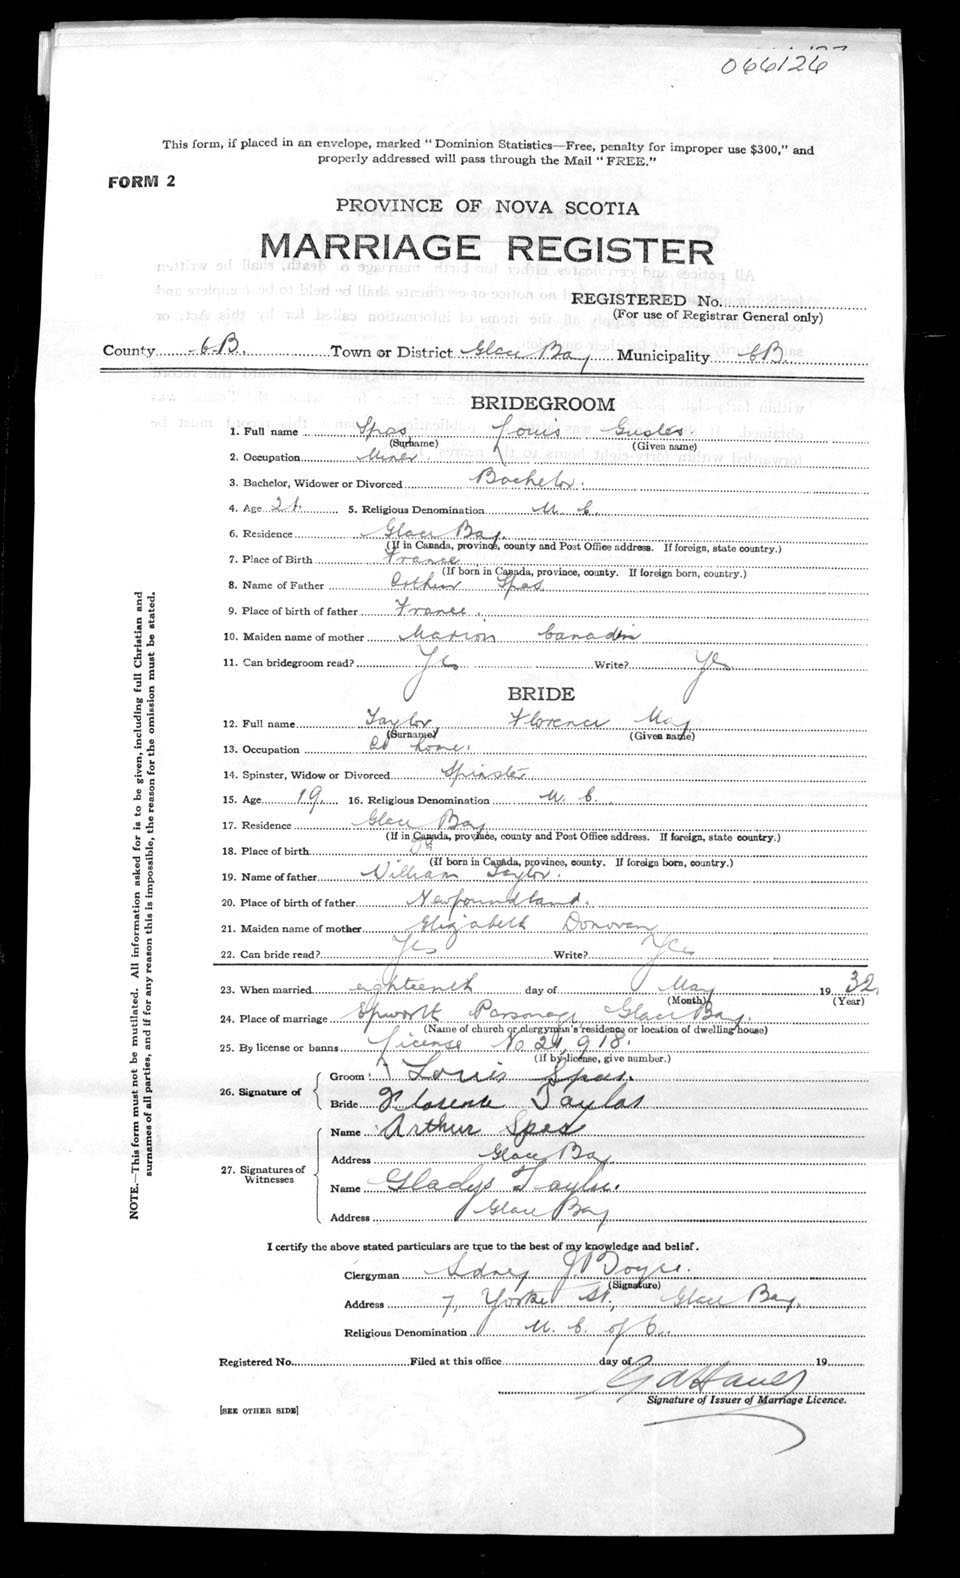 066126
This form, if placed in an envelope, marked "Dominion Statistics—Free, penalty for improper use $300," and
properly addressed will pass through the Mail "FREE."
FORM 2
PROVINCE OF NOVA SCOTIA
MARRIAGE REGISTER
REGISTERED No.
(For use of Registrar General only)
County C.B. Town or District Glace Bay Municipality C.B.
BRIDEGROOM
1. Full name Spas Louis
(Surname) (Given name)
2. Occupation Miner.
3. Bachelor, Widower or Divorced Bachelor.
4. Age 21. 5. Religious Denomination U. C.
6. Residence Glace Bay.
(If in Canada, province, county and Post Office address. If foreign, state country.)
7. Place of Birth France
(If born in Canada, province, county. If foreign born, country.)
8. Name of Father Arthur Spas
9. Place of birth of father France.
10. Maiden name of mother Marion
11. Can bridegroom read? Yes Write? Yes
BRIDE
12. Full name Taylor Florence May
(Surname) (Given name)
13. Occupation At home.
14. Spinster, Widow or Divorced Spinster
15. Age 19. 16. Religious Denomination U. C.
17. Residence Glace Bay
(If in Canada, province, county and Post Office address. If foreign, state country.)
18. Place of birth
(If born in Canada, province, county. If foreign born, country.)
19. Name of father William Taylor.
20. Place of birth of father Newfoundland.
21. Maiden name of mother Elizabeth Donovan
22. Can bride read? Yes Write? Yes
23. When married eighteenth day of May 19 32.
(Month) (Year)
24. Place of marriage Epworth Parsonage Glace Bay.
(Name of church or clergyman's residence or location of dwelling house)
25. By license or banns License No 21,918.
(If by license, give number.)
26. Signature of
Groom Louis Spas.
Bride Florence Taylor
27. Signatures of Witnesses
Name Arthur Spas
Address Glace Bay
Name Gladys Taylor.
Address Glace Bay
I certify the above stated particulars are true to the best of my knowledge and belief.
Clergyman Sidney J Boyce.
(Signature)
Address 7, Yorke St., Glace Bay.
Religious Denomination U. C. of C.
Registered No. Filed at this office day of 19
Signature of Issuer of Marriage Licence.
[SEE OTHER SIDE]
NOTE.—This form must not be mutilated. All information asked for is to be given, including full Christian and
surnames of all parties, and if for any reason this is impossible, the reason for the omission must be stated.